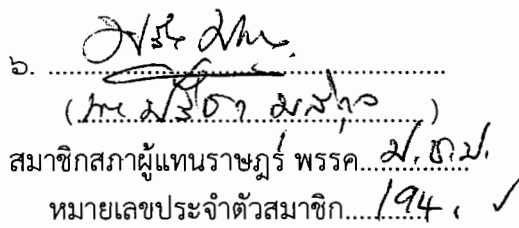 ๖. ........................................
(.... ปรีชา มุสิกุล ....)
สมาชิกสภาผู้แทนราษฎร พรรค.... ป.ช.ป.
หมายเลขประจำตัวสมาชิก.... 194. ✓